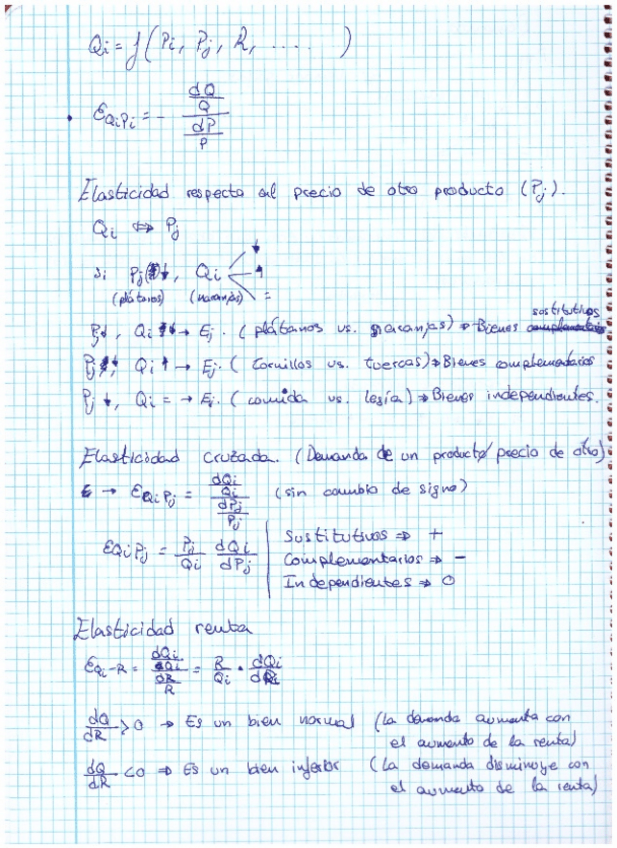 Qi = f ( Pi, Pj, R, .... )
EQiPi = - (dQ/Q) / (dP/P)
Elasticidad respecto al precio de otro producto (Pj).
Qi ⇔ Pj
Si Pj ↓, Qi ↓ ↑ =
(plátanos) (naranjas)
Pj ↓, Qi ↓ → Ej. ( plátanos vs. naranjas) ⇒ Bienes sustitutivos
Pj ↓, Qi ↑ → Ej. ( tornillos vs. tuercas) ⇒ Bienes complementarios
Pj ↓, Qi = → Ej. ( comida vs. lejía) ⇒ Bienes independientes.
Elasticidad cruzada. (Demanda de un producto/precio de otro)
→ EQiPj = (dQi/Qi) / (dPj/Pj) (sin cambio de signo)
EQiPj = Pj/Qi dQi/dPj
Sustitutivos ⇒ +
Complementarios ⇒ -
Independientes ⇒ 0
Elasticidad renta
EQi-R = (dQi/Qi) / (dR/R) = R/Qi · dQi/dR
dQ/dR > 0 → Es un bien normal (la demanda aumenta con
el aumento de la renta)
dQ/dR < 0 ⇒ Es un bien inferior (La demanda disminuye con
el aumento de la renta)